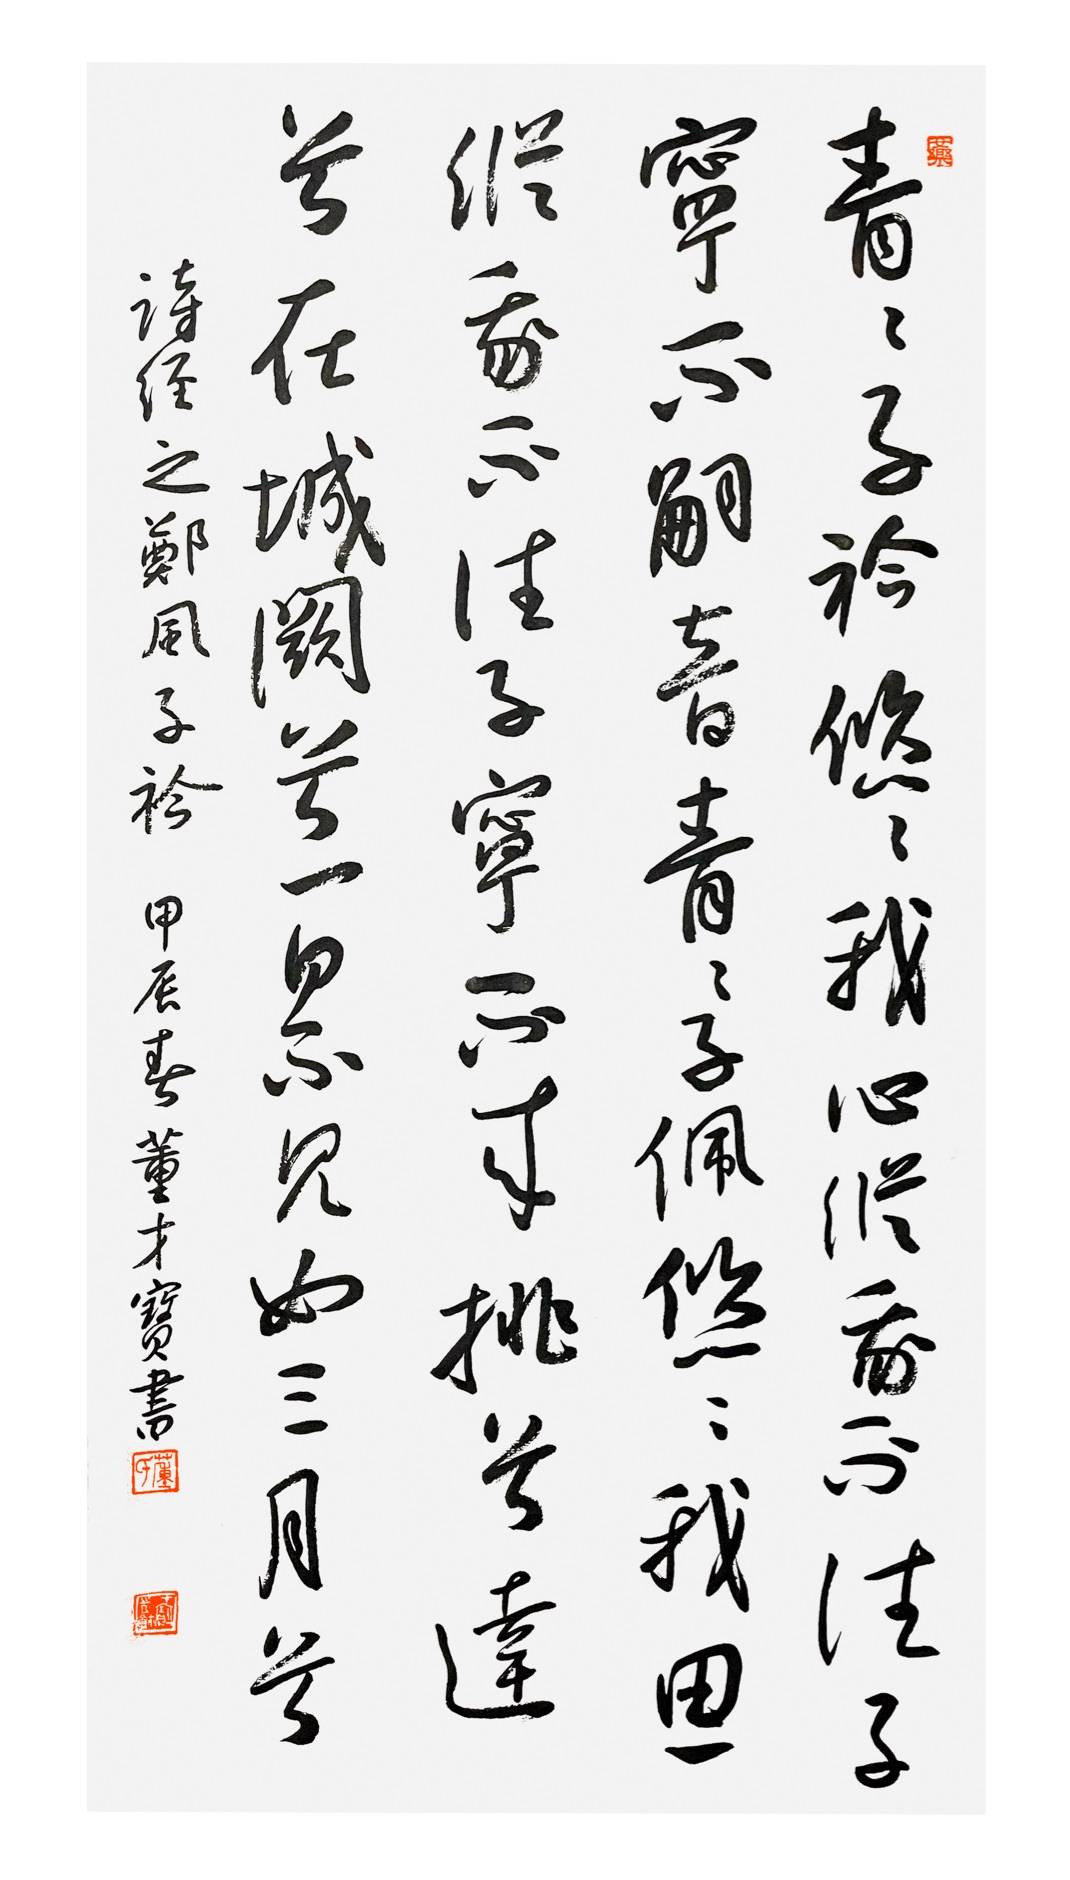 青〻子衿悠〻我心縱我不往子
寧不嗣音青〻子佩悠〻我思
縱我不往子寧不来挑兮達
兮在城闕兮一日不見如三月兮
詩經之鄭風子衿 甲辰春董才寶書